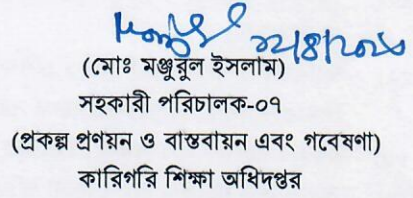 (মোঃ মঞ্জুরুল ইসলাম)
সহকারী পরিচালক-০৭
(প্রকল্প প্রণয়ন ও বাস্তবায়ন এবং গবেষণা)
কারিগরি শিক্ষা অধিদপ্তর